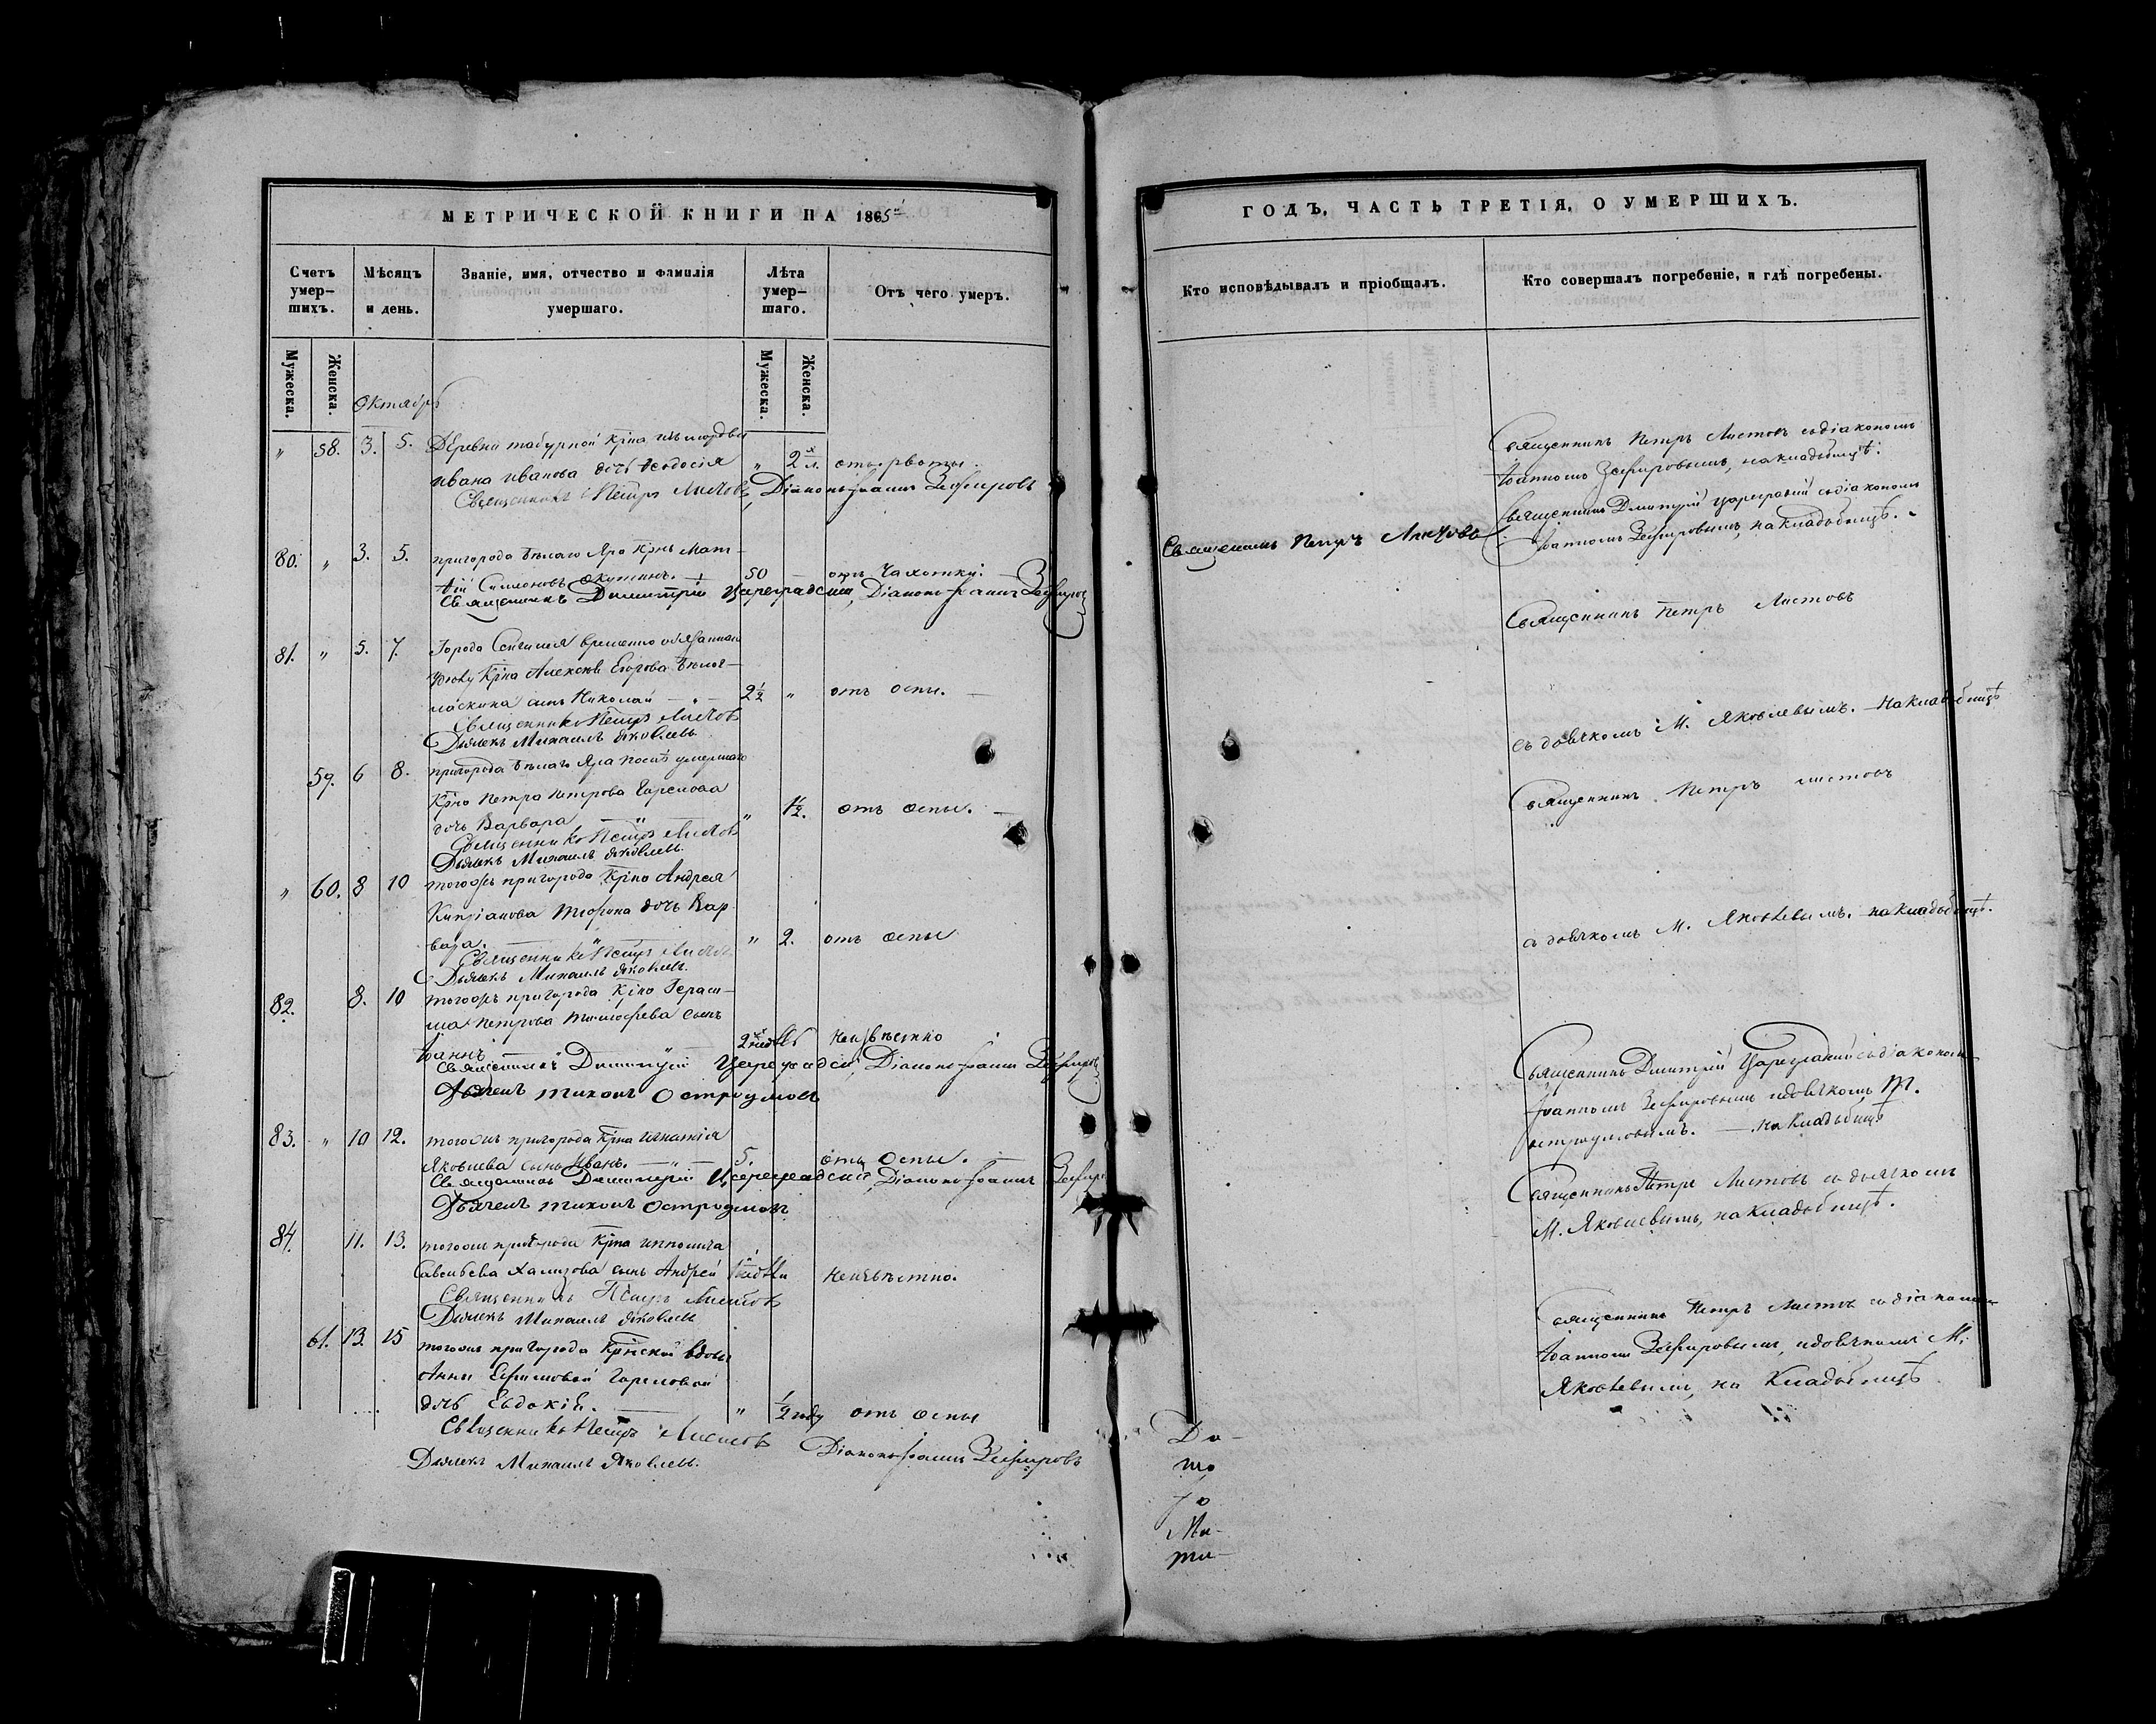 МЕТРИЧЕСКОЙ КНИГИ НА 1865й
Счетъ умер-шихъ.
Мѣсяцъ и день.
Званіе, имя, отчество и фамилія умершаго.
Лѣта умер-шаго.
Отъ чего умеръ.
Мужеска.
Женска.
Мужеска.
Женска.
Октябрь
" 58. 3. 5. Деревни Табурной Крна изъ мордвы
Ивана Иванова дочь Ѳеодосія " 2 л. отъ рвоты.
Священникъ Петръ Листовъ, Діаконъ Іоаннъ Зефировъ
80. " 3. 5. пригорода Бѣлаго Яра Крнъ Мат-
ѳій Симеоновъ 50 отъ Чахотки.
Священникъ Димитрій Цареградскій, Діаконъ Іоаннъ Зефировъ
81. " 5. 7. Города Сенгилея временно обязаннаго
Крна Алексѣя Егорова
сынъ Николай — " — 2½ " отъ оспы. —
Священникъ Петръ Листовъ
Дьячекъ Михаилъ Яковлевъ
59. 6 8. пригорода Бѣлаго Яра послѣ умершаго
Крна Петра Петрова Гарелова
дочь Варвара " 1½. отъ оспы. —
Священникъ Петръ Листовъ
Дьячекъ Михаилъ Яковлевъ.
" 60. 8 10 тогожъ пригорода Крна Андрея
Кипріанова Тюрина дочь Вар-
вара. " 2. отъ оспы
Священникъ Петръ Листовъ
Дьячекъ Михаилъ Яковлевъ.
82. 8. 10 тогожъ пригорода Крна Гераси-
ма Петрова Тимофеева сынъ
Іоаннъ 2 недѣль неизвѣстно
Священникъ Димитрій Цареградскій, Діаконъ Іоаннъ Зефировъ
Дьячекъ Тихонъ Остроумовъ
83. " 10 12. тогожъ пригорода Крна Игнатія
Яковлева сынъ Иванъ. — " — 5. отъ Оспы. —
Священникъ Димитрій Цареградскій, Діаконъ Іоаннъ Зефиръ
Дьячекъ Тихонъ Остроумовъ
84. 11. 13. тогожъ пригорода Крна Ипполита
Савельева Хализова сынъ Андрей недѣли неизвѣстно.
Священникъ Петръ Листовъ
Дьячекъ Михаилъ Яковлевъ
61. 13. 15 тогожъ пригорода Крнской вдовы
Анны Ефимовой Гареловой
дочь Евдокія. — " ½ году отъ оспы
Священникъ Петръ Листовъ Діаконъ Іоаннъ Зефировъ
Дьячекъ Михаилъ Яковлевъ.
ГОДЪ, ЧАСТЬ ТРЕТІЯ, О УМЕРШИХЪ.
Кто исповѣдывалъ и пріобщалъ.
Кто совершалъ погребеніе, и гдѣ погребены.
Священникъ Петръ Листовъ съ діакономъ
Іоанномъ Зефировымъ, на кладбищѣ.
Священникъ Петръ Листовъ
Священникъ Димитрій Цареградскій съ діакономъ
Іоанномъ Зефировымъ, на кладбищѣ. -
Священникъ Петръ Листовъ
съ дьячкомъ М. Яковлевымъ. — на кладбищѣ
Священникъ Петръ Листовъ
съ дьячкомъ М. Яковлевымъ. на кладбищѣ.
Священникъ Дмитрій Цареградскій съ діакономъ
Іоанномъ Зефировымъ и дьячкомъ Т.
Остроумовымъ. — на кладбищѣ
Священникъ Петръ Листовъ съ дьячкомъ
М. Яковлевымъ, на кладбищѣ.
Священникъ Петръ Листовъ съ діакономъ
Іоанномъ Зефировымъ, и дьячкомъ М.
Яковлевымъ, на Кладбищѣ
Ди-
ми-